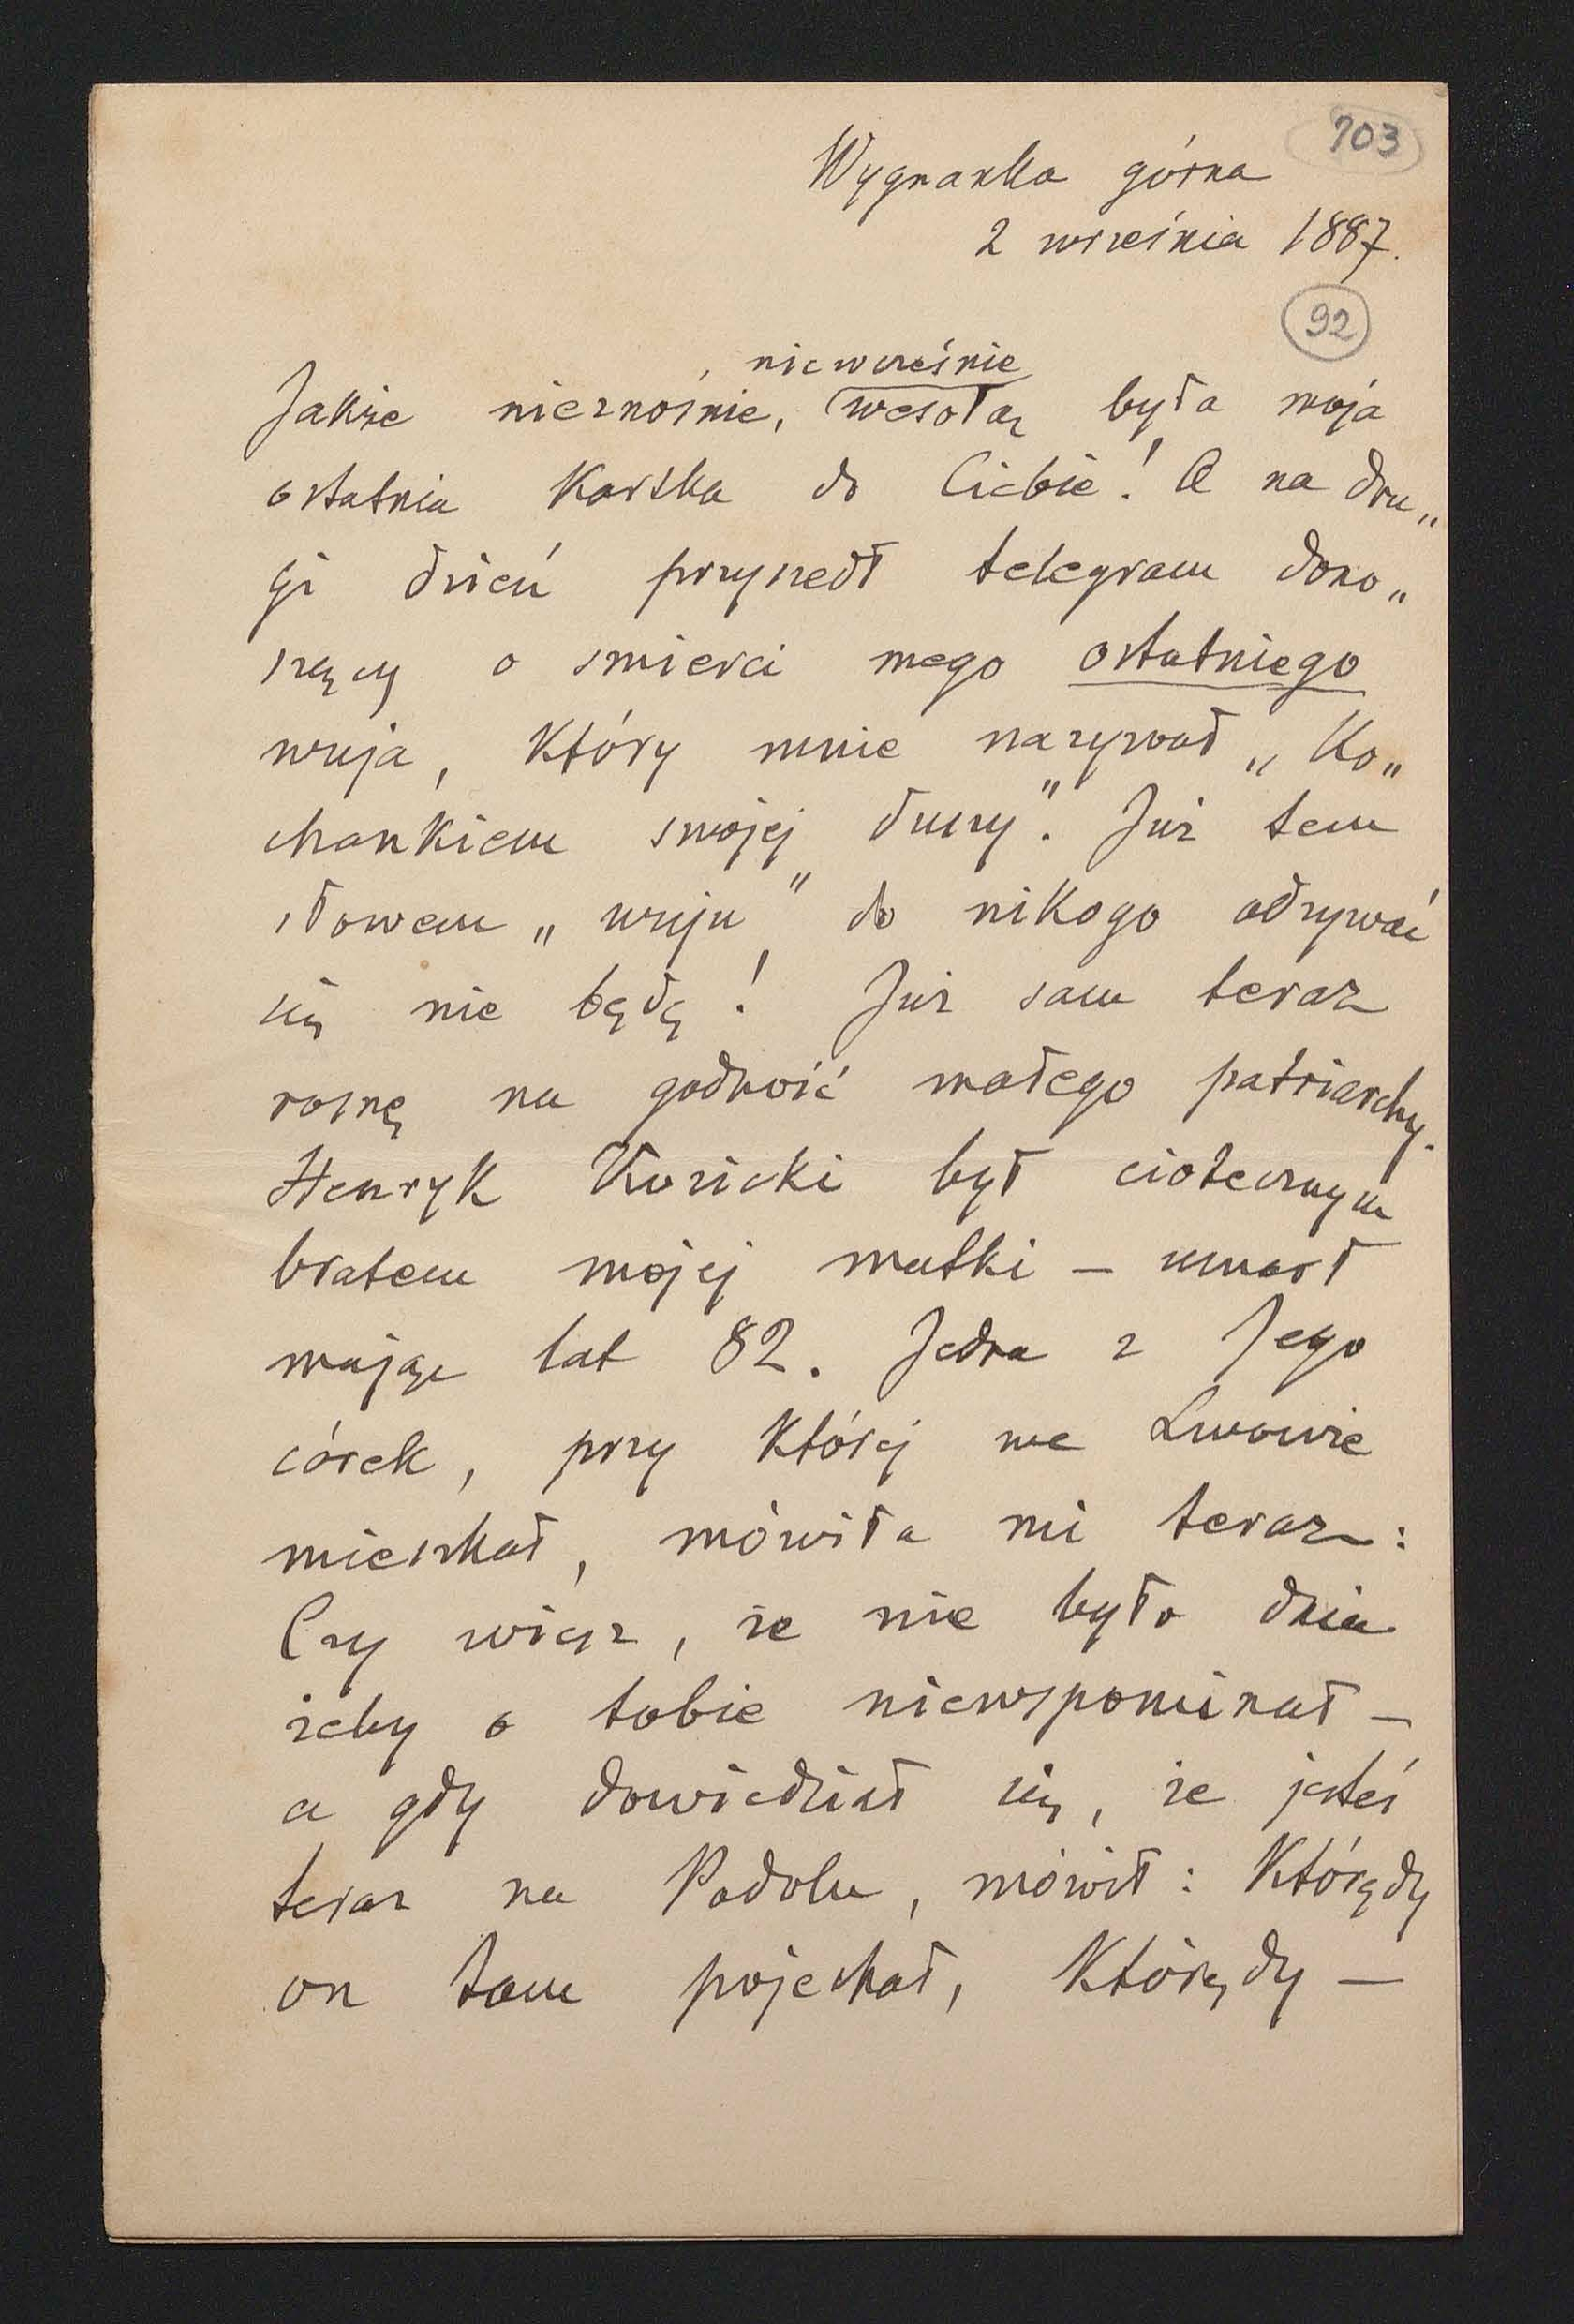 703
Wygnanka górna
2 września 1887.
92
niewcześnie
Jakże nieznośnie, wesołą była moja
ostatnia kartka do Ciebie! A na dru„
gi dzień przyszedł telegram dono„
szący o śmierci mego ostatniego
wuja, który mnie nazywał „Ko„
chankiem swojej duszy". Już tem
słowem „wuju" do nikogo odzywać
się nie będę! Już sam teraz
rosnę na godność małego patriarchy.
Henryk był ciotecznym
bratem mojej matki — umarł
mając lat 82. Jedna z Jego
córek, przy której we Lwowie
mieszkał, mówiła mi teraz:
Czy wiesz, że nie było dnia
żeby o tobie niewspominał —
a gdy dowiedział się, że jesteś
teraz na Podolu, mówił: Którędy
on tam pojechał, którędy —